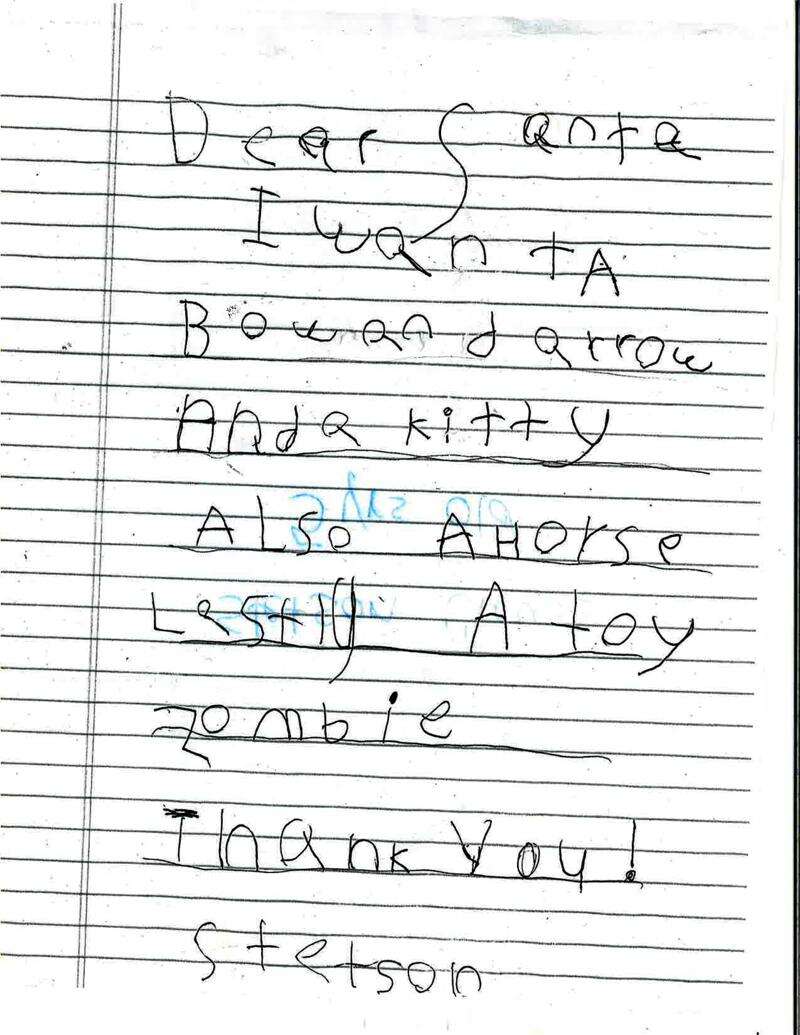 Dear Santa
I want A
Bow and arrow
And a kitty
ALso A Horse
Lastly A toy
zombie
Thank You!
Stetson